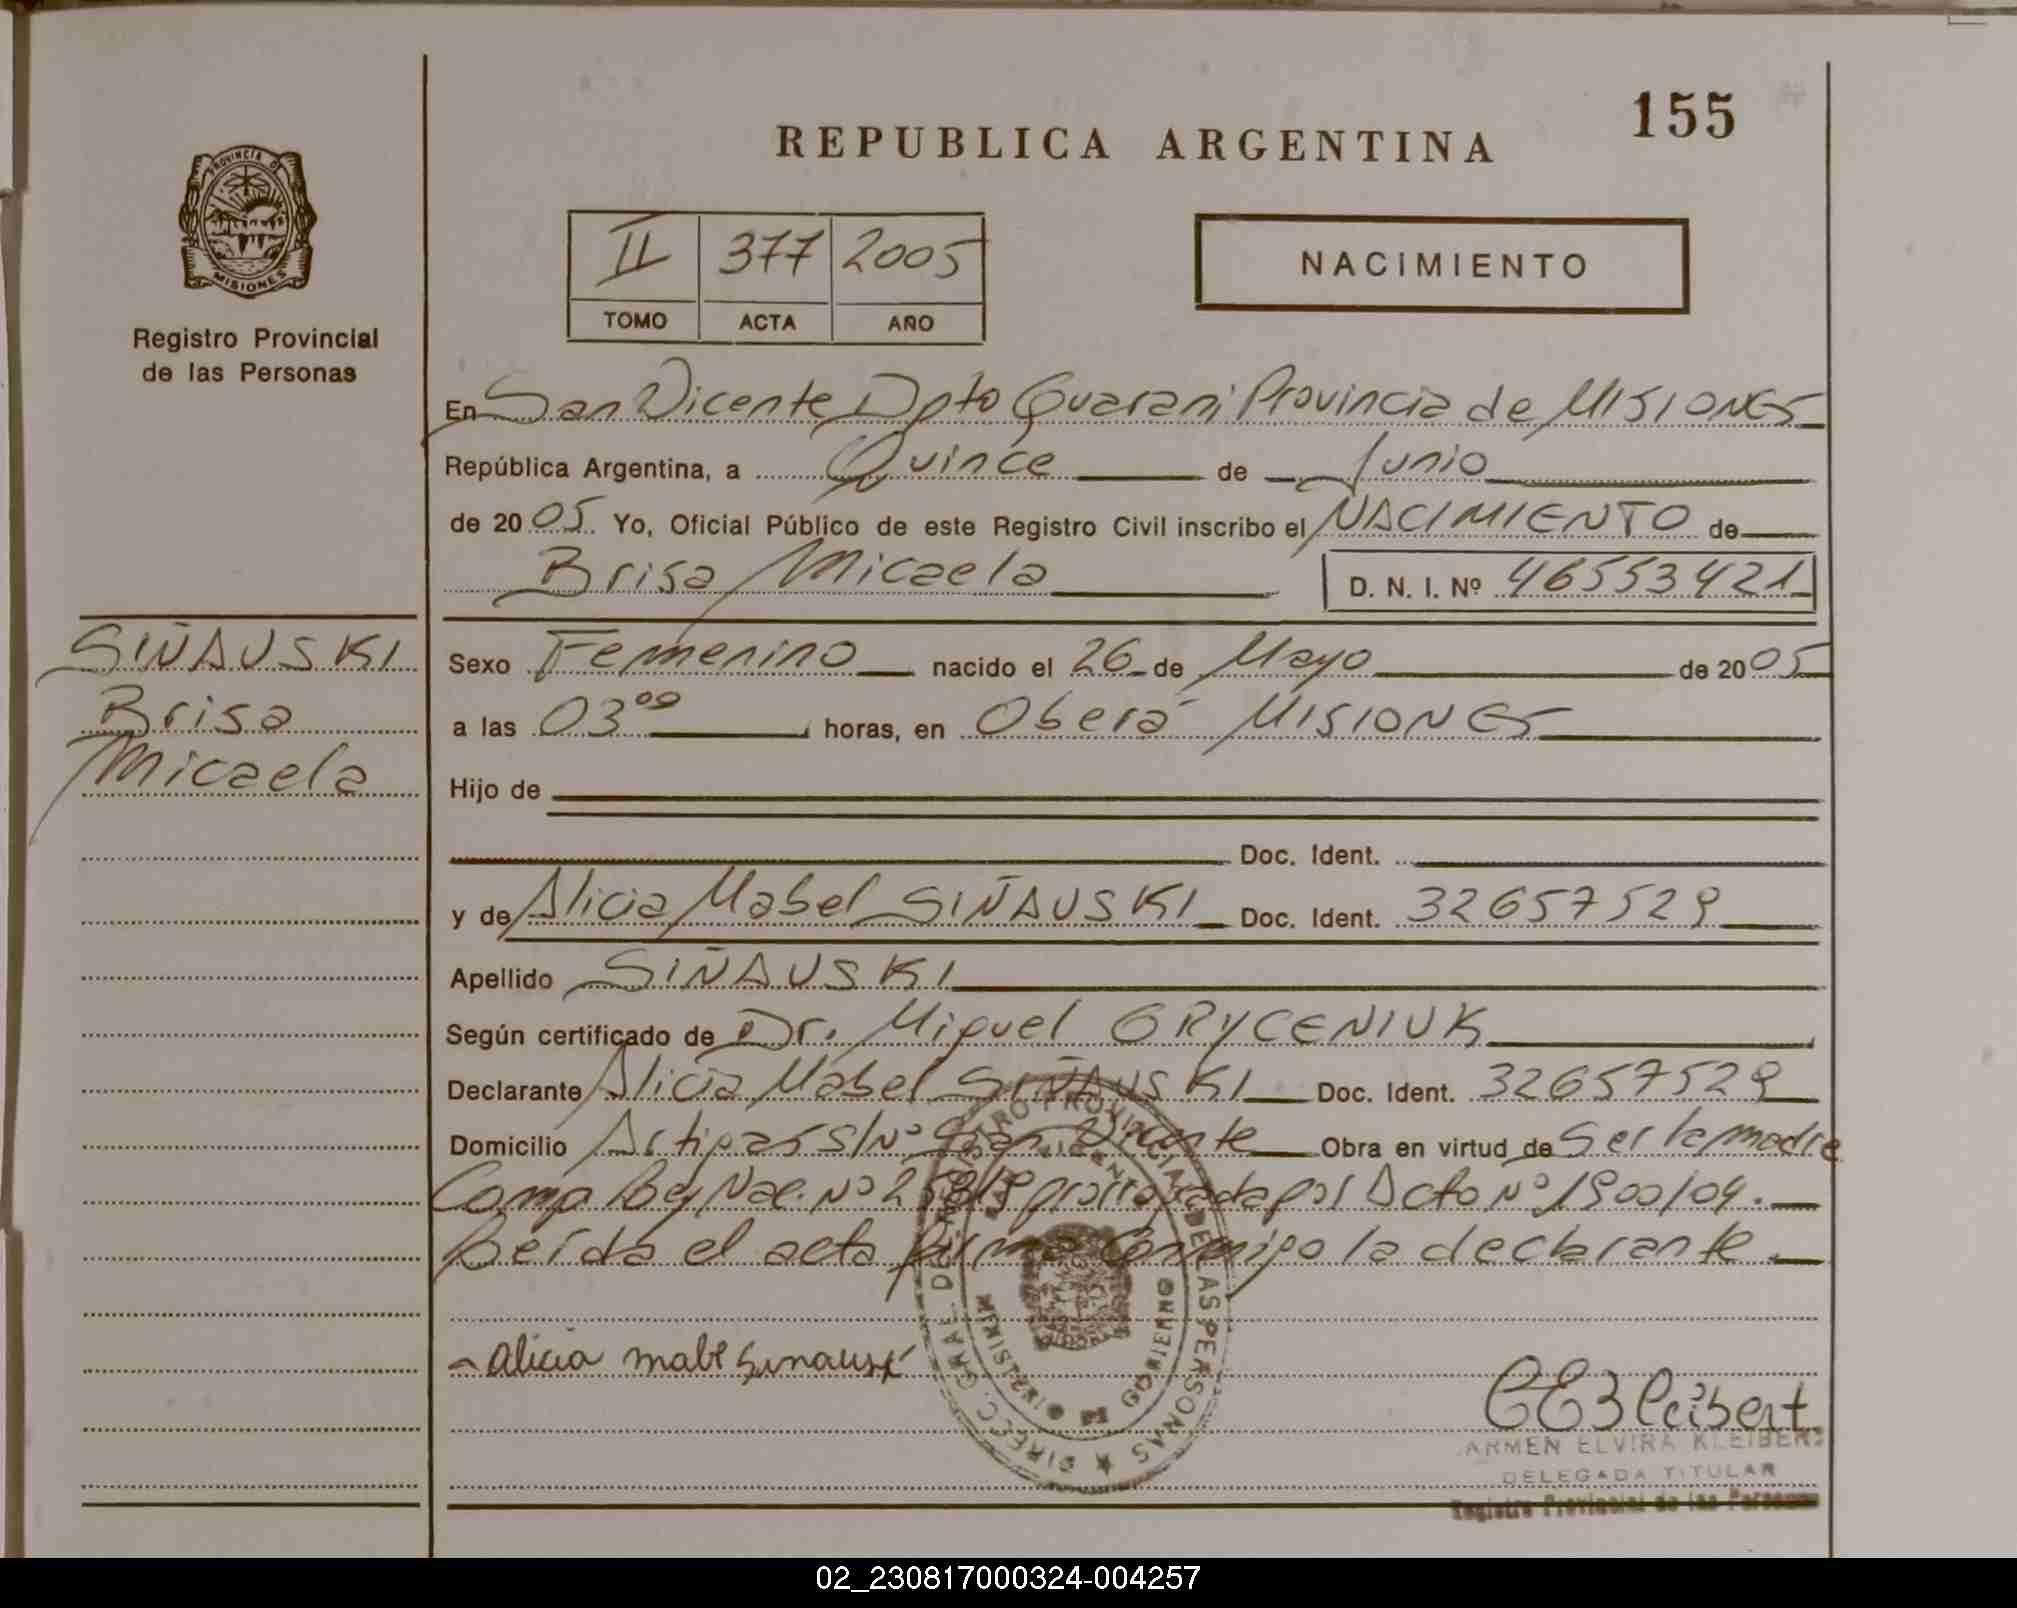 155
REPUBLICA ARGENTINA
PROVINCIA DE
MISIONES
Registro Provincial
de las Personas
II 377 2005
TOMO ACTA AÑO
NACIMIENTO
En San Vicente Dpto Guaraní Provincia de MISIONES
República Argentina, a Quince de Junio
de 2005 Yo, Oficial Público de este Registro Civil inscribo el NACIMIENTO de
Brisa Micaela D. N. I. Nº 46553421
SIÑAUSKI
Brisa
Micaela
Sexo Femenino nacido el 26 de Mayo de 2005
a las 03⁰⁰ horas, en Oberá MISIONES
Hijo de
Doc. Ident.
y de Alicia Mabel SIÑAUSKI Doc. Ident. 32657529
Apellido SIÑAUSKI
Según certificado de Dr. Miguel GRYCENIUK
Declarante Alicia Mabel SIÑAUSKI Doc. Ident. 32657529
Domicilio Artigas S/Nº San Vicente Obra en virtud de Ser la madre
Comp Ley Nac. Nº 25819 prorrogada por Dcto Nº 1900/04.
Leída el acta firma conmigo la declarante.
DIREC. GRAL. DEL REGISTRO PROVINCIAL DE LAS PERSONAS
MINISTERIO DE GOBIERNO
SAN VICENTE
Alicia mabel Sinauski
CEKleibert
ARMEN ELVIRA KLEIBERT
DELEGADA TITULAR
Registro Provincial de las Personas
02_230817000324-004257